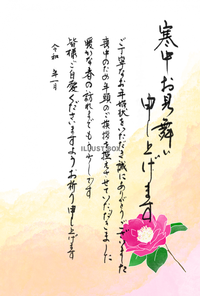 寒中お見舞い
申し上げます
ご丁寧なお年始状をいただき誠にありがとうございました
喪中のため年頭のご挨拶を控えさせていただきました
暖かな春の訪れまでもう少しです
皆様ご自愛くださいますようお祈り申し上げます
令和 年一月
ILLUST BOX